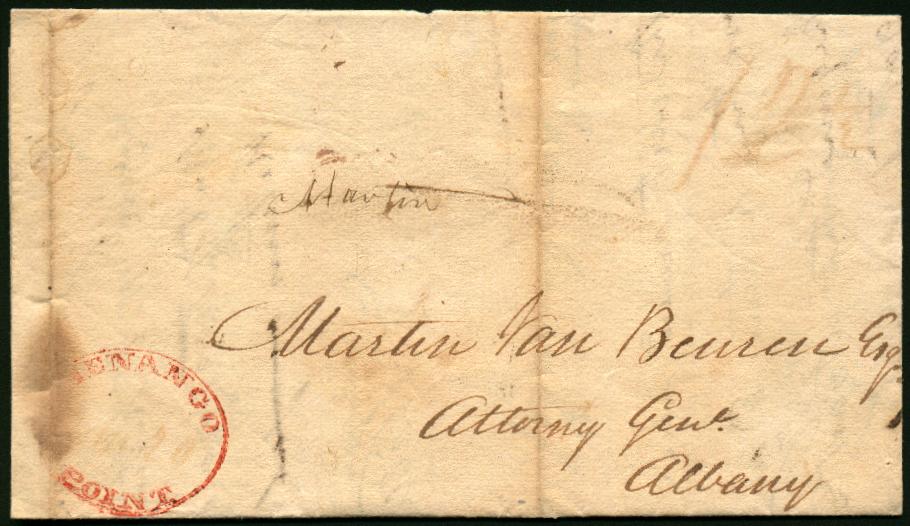 Martin
Martin Van Beuren Esqr
Attorny Genl.
Albany
HENANGO
POINT